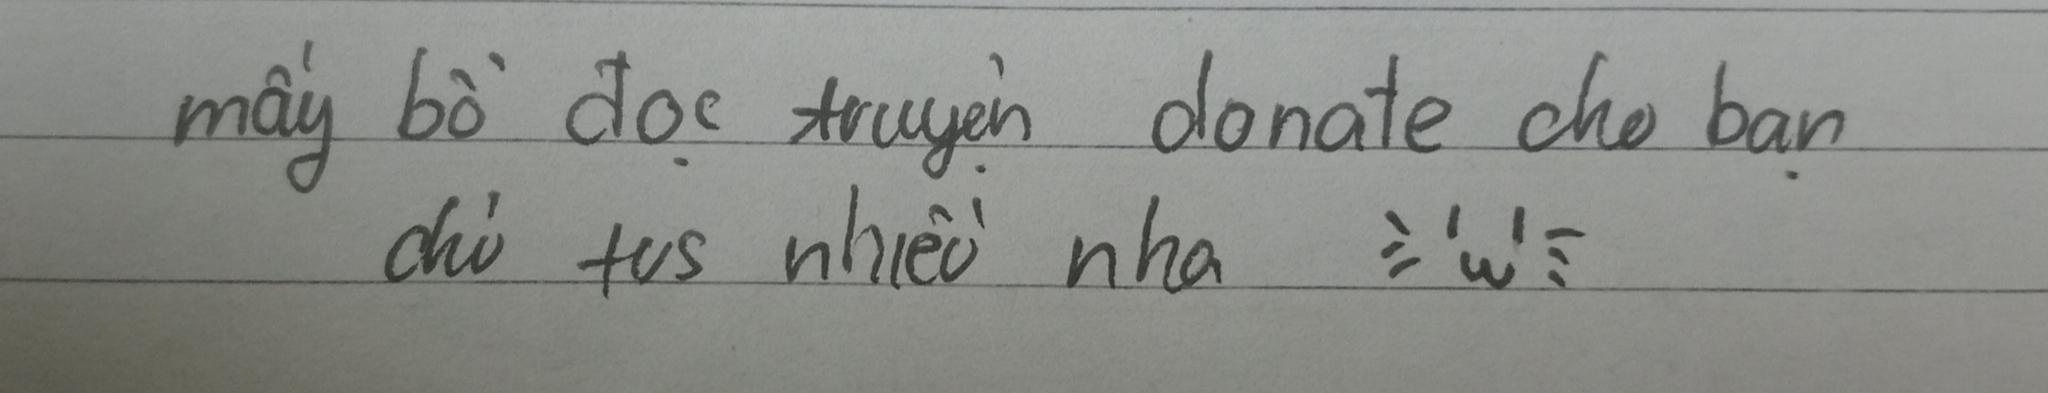 mấy bồ đọc truyện donate cho bạn
chủ tus nhiều nha ⩾'w'⩽